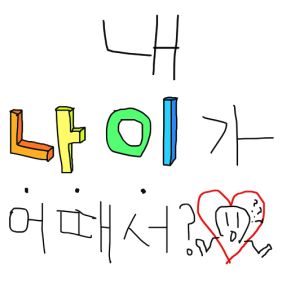 내
나이가
어때서?